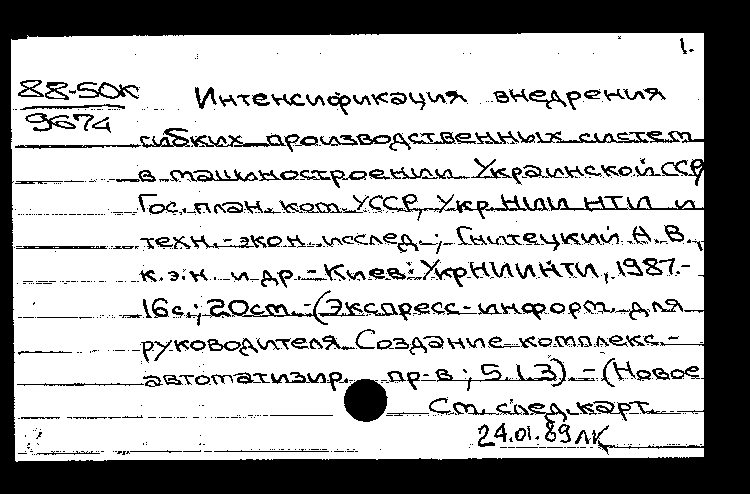 1.
88-50К Интенсификация внедрения
9674
гибких производственных систем
в машиностроении Украинской ССР
Гос. план. ком. УССР, Укр НИИ НТИ и
техн.-экон. исслед.; Гнитецкий А. В.,
к.э.н. и др. - Киев: УкрНИИНТИ, 1987.-
16с.; 20см. - (Экспресс-информ. для
руководителя. Создание комплекс.-
автоматизир. пр-в; 5.1.3). - (Новое
См. след. карт.
24.01.89 ЛК